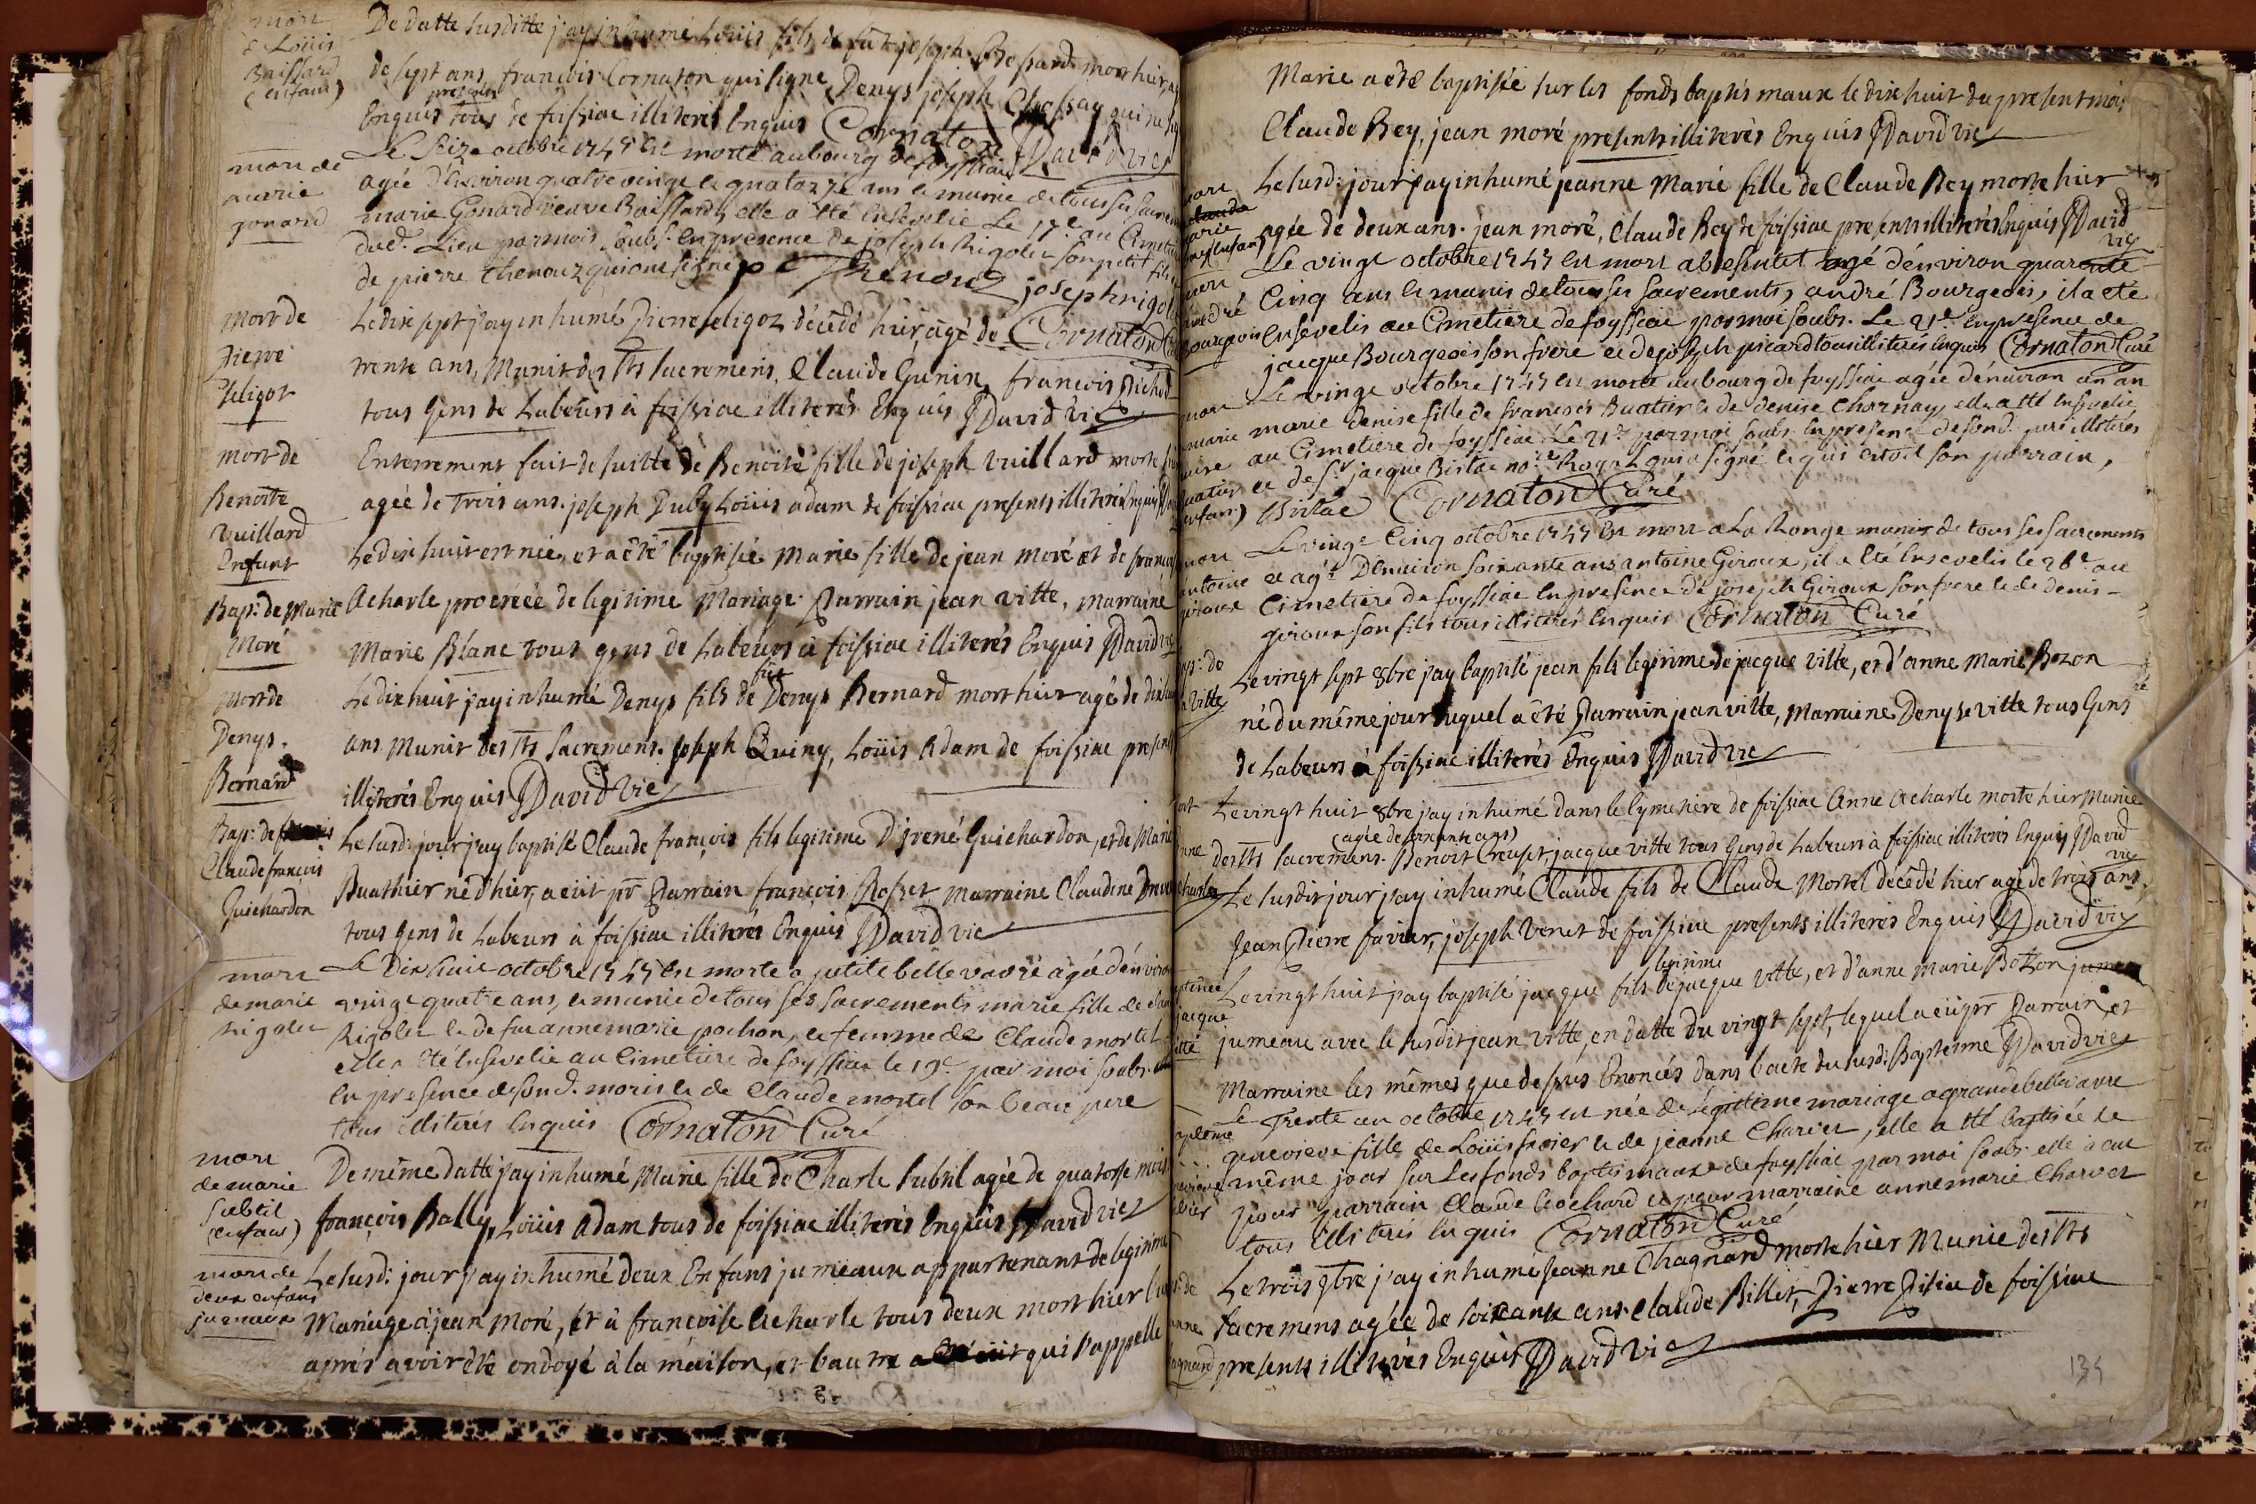 mort
de Loüis
Baissard
(enfant)
De datte susditte j'ay inhumé Loüis fils de fût joseph Baissard mort hier agé
de sept ans, françois Cornaton qui signe, Denys joseph Chossay qui ne
Enquis tous presents de foissiac illiterés Enquis Cornaton David vic
mort de
marie
gonard
Le seize octobre 1747 est morte au bourg de foyssiac
agée d'Environ quatre vingt et quatorze ans et munie de tous ses sacrem
marie Gonard veuve Baissard, elle a été Ensevelie Le 17e au Cimetiere
dud. Lieu par moi soubs. en presence de joseph Rigolet son petit fils
de pierre thenouz qui ont signé p thenoud joseph rigolet
Cornaton Curé
mort de
Pierre
Peligot
Le dix sept j'ay inhumé Pierre peligoz décédé hier, agé de
trente ans, Munit des Sts sacremens, Claude Gunin, françois Bichod
tous Gens de Labeurs à foissiac illiterés Enquis David vic
mort de
Benoite
Vuillard
Enfant
Enterrement fait de suitte de Benoite fille de joseph vuillard morte hier
agée de trois ans. joseph Puby Loüis adam de foissiac presents illiterés Enquis
Bap: de Marie
Moré
Le dix huit est née, et a été baptisée Marie fille de jean moré et de francoise
Acharle procréée de legitime Mariage. Parrain jean vitte, marraine
Marie Blanc tous gens de Labeurs à foissiac illiterés Enquis David vic
mort de
Denys
Bernard
Le dix huit j'ay inhumé Denys fils de fût Denys Bernard mort hier agé de dix
ans Munit des Sts sacremens. joseph Quiny, Loüis Adam de foissiac presents
illiterés Enquis David Vic
Bap: de
Claude françois
Guichardon
Le susd: jour j'ay baptisé Claude françois fils legitime D'irené Guichardon, et de Marie
Buathier né d'hier, a eüt pr Parrain françois Rosset, marraine Claudine
tous gens de Labeurs à foissiac illiterés Enquis David vic
mort
de marie
rigolet
Le Dix huit octobre 1747 est morte a petite bellevavre agée d'environ
vingt quatre ans, et munie de tous ses sacrements marie fille de
Rigolet et de fue annemarie pochon, et femme de Claude mortel
elle a été Ensevelie au Cimetiere de foyssiac le 19e par moi soubs.
En presence de sond. mari et de Claude mortel son beau pere
tous illiterés Enquis Cornaton Curé
mort
de marie
Subtil
(enfant)
De même datte j'ay inhumé Marie fille de Charle subtil agée de quatorse mois
françois Bally, Loüis Adam tous de foissiac illiterés Enquis David vic
mort de
deux enfans
jumaux
Le susd: jour j'ay inhumé deux Enfans jumeaux appartenant de legitime
Mariage à jean Moré, et à francoise Acharle tous deux mort hier l'un
aprés avoir été ondoyé à la maison, et l'autre qui s'appelle
Marie a été baptisée sur les fonds baptis maux le dix huit du present mois
Claude Rey, jean moré presents illiterés Enquis David vic
Le susd: jour j'ay inhumé jeanne Marie fille de Claude Rey morte hier
agée de deux ans. jean moré, Claude Rey de foissiac presents illiterés Enquis David
vic
mort
andré
Bourgeois
Le vingt octobre 1747 est mort absentet agé d'environ quarente
Cinq ans et munis de tous ses sacrements, andré Bourgeois, il a été
Ensevelis au Cimetiere de foyssiac par moi soubs. Le 21e En presence de
jacque Bourgeois son frere et de joseph picard tous illiterés Enquis Cornaton Curé
Le vingt octobre 1747 est morte au bourg de foyssiac agée d'environ un an
marie denise fille de francois Buatier et de denise Charnay, elle a été Ensevelie
au Cimetiere de foyssiac Le 21e par moi soubs. En presence de sond. pere illiterés
et de Sr jacque Bistac no.re Royal qui a signé et qui etoit son parrain,
Bistac Cornaton Curé
mort
antoine
giroux
Le vingt Cinq octobre 1747 est mort a La Ronge munis de tous ses sacrements
et agé D'Environ soixante ans antoine Giroux, il a été Ensevelis le 26e au
Cimetiere de foyssiac En presence de joseph Giroux son frere et de denis
giroux son fils tous illiterés Enquis Cornaton Curé
Vitte
Le vingt sept 8bre j'ay baptisé jean fils legitime de jacque vitte, et d'anne Marie Bozon
né du même jour lequel a été Parrain jean vitte, Marraine Denyse vitte tous Gens
de Labeurs à foissiac illiterés Enquis David Vic
Le vingt huit 8bre j'ay inhumé dans le Cymetiere de foissiac Anne Acharle morte hier Munie
(agée de soixante ans)
des Sts sacremens. Benoit Creuset, jacque vitte tous Gens de Labeurs à foissiac illiterés Enquis David
vic
Le susdit jour j'ay inhumé Claude fils de Claude Mortel décédé hier agé de trois ans,
Jean Pierre favier, joseph Venet de foissiac presents illiterés Enquis David vic
jacque
Le vingt huit j'ay baptisé jacque fils legitime de jacque vitte, et d'anne marie Bozon
jumeau avec le susdit jean vitte, en datte du vingt sept, lequel a eü pr Parrain et
Marraine les mêmes que dessus Enoncés dans l'acte du susd: Baptesme David vic
Le trente un octobre 1747 est née de légitime mariage a grande bellevavre
genevieve fille de Loüis et de jeanne Charvet, elle a été baptisée le
même jour sur Les fonds baptismaux de foyssiac par moi soubs. elle a eu
pour parrain Claude Cochard et pour marraine annemarie Charvet
tous illiterés Enquis Cornaton Curé
Le trois 9bre j'ay inhumé jeanne Chagnard morte hier Munie des Sts
sacremens agée de soixante ans. Claude Billet, Pierre Pisiu de foissiac
presents illiterés Enquis David Vic
134